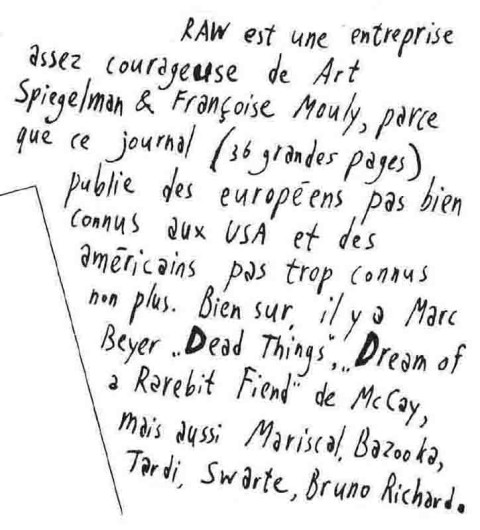 RAW est une entreprise
assez courageuse de Art
Spiegelman & Françoise Mouly, parce
que ce journal (36 grandes pages)
publie des européens pas bien
connus aux USA et des
américains pas trop connus
non plus. Bien sur, il y a Marc
Beyer „Dead Things", „Dream of
a Rarebit Fiend" de McCay,
mais aussi Mariscal, Bazooka,
Tardi, Swarte, Bruno Richard.